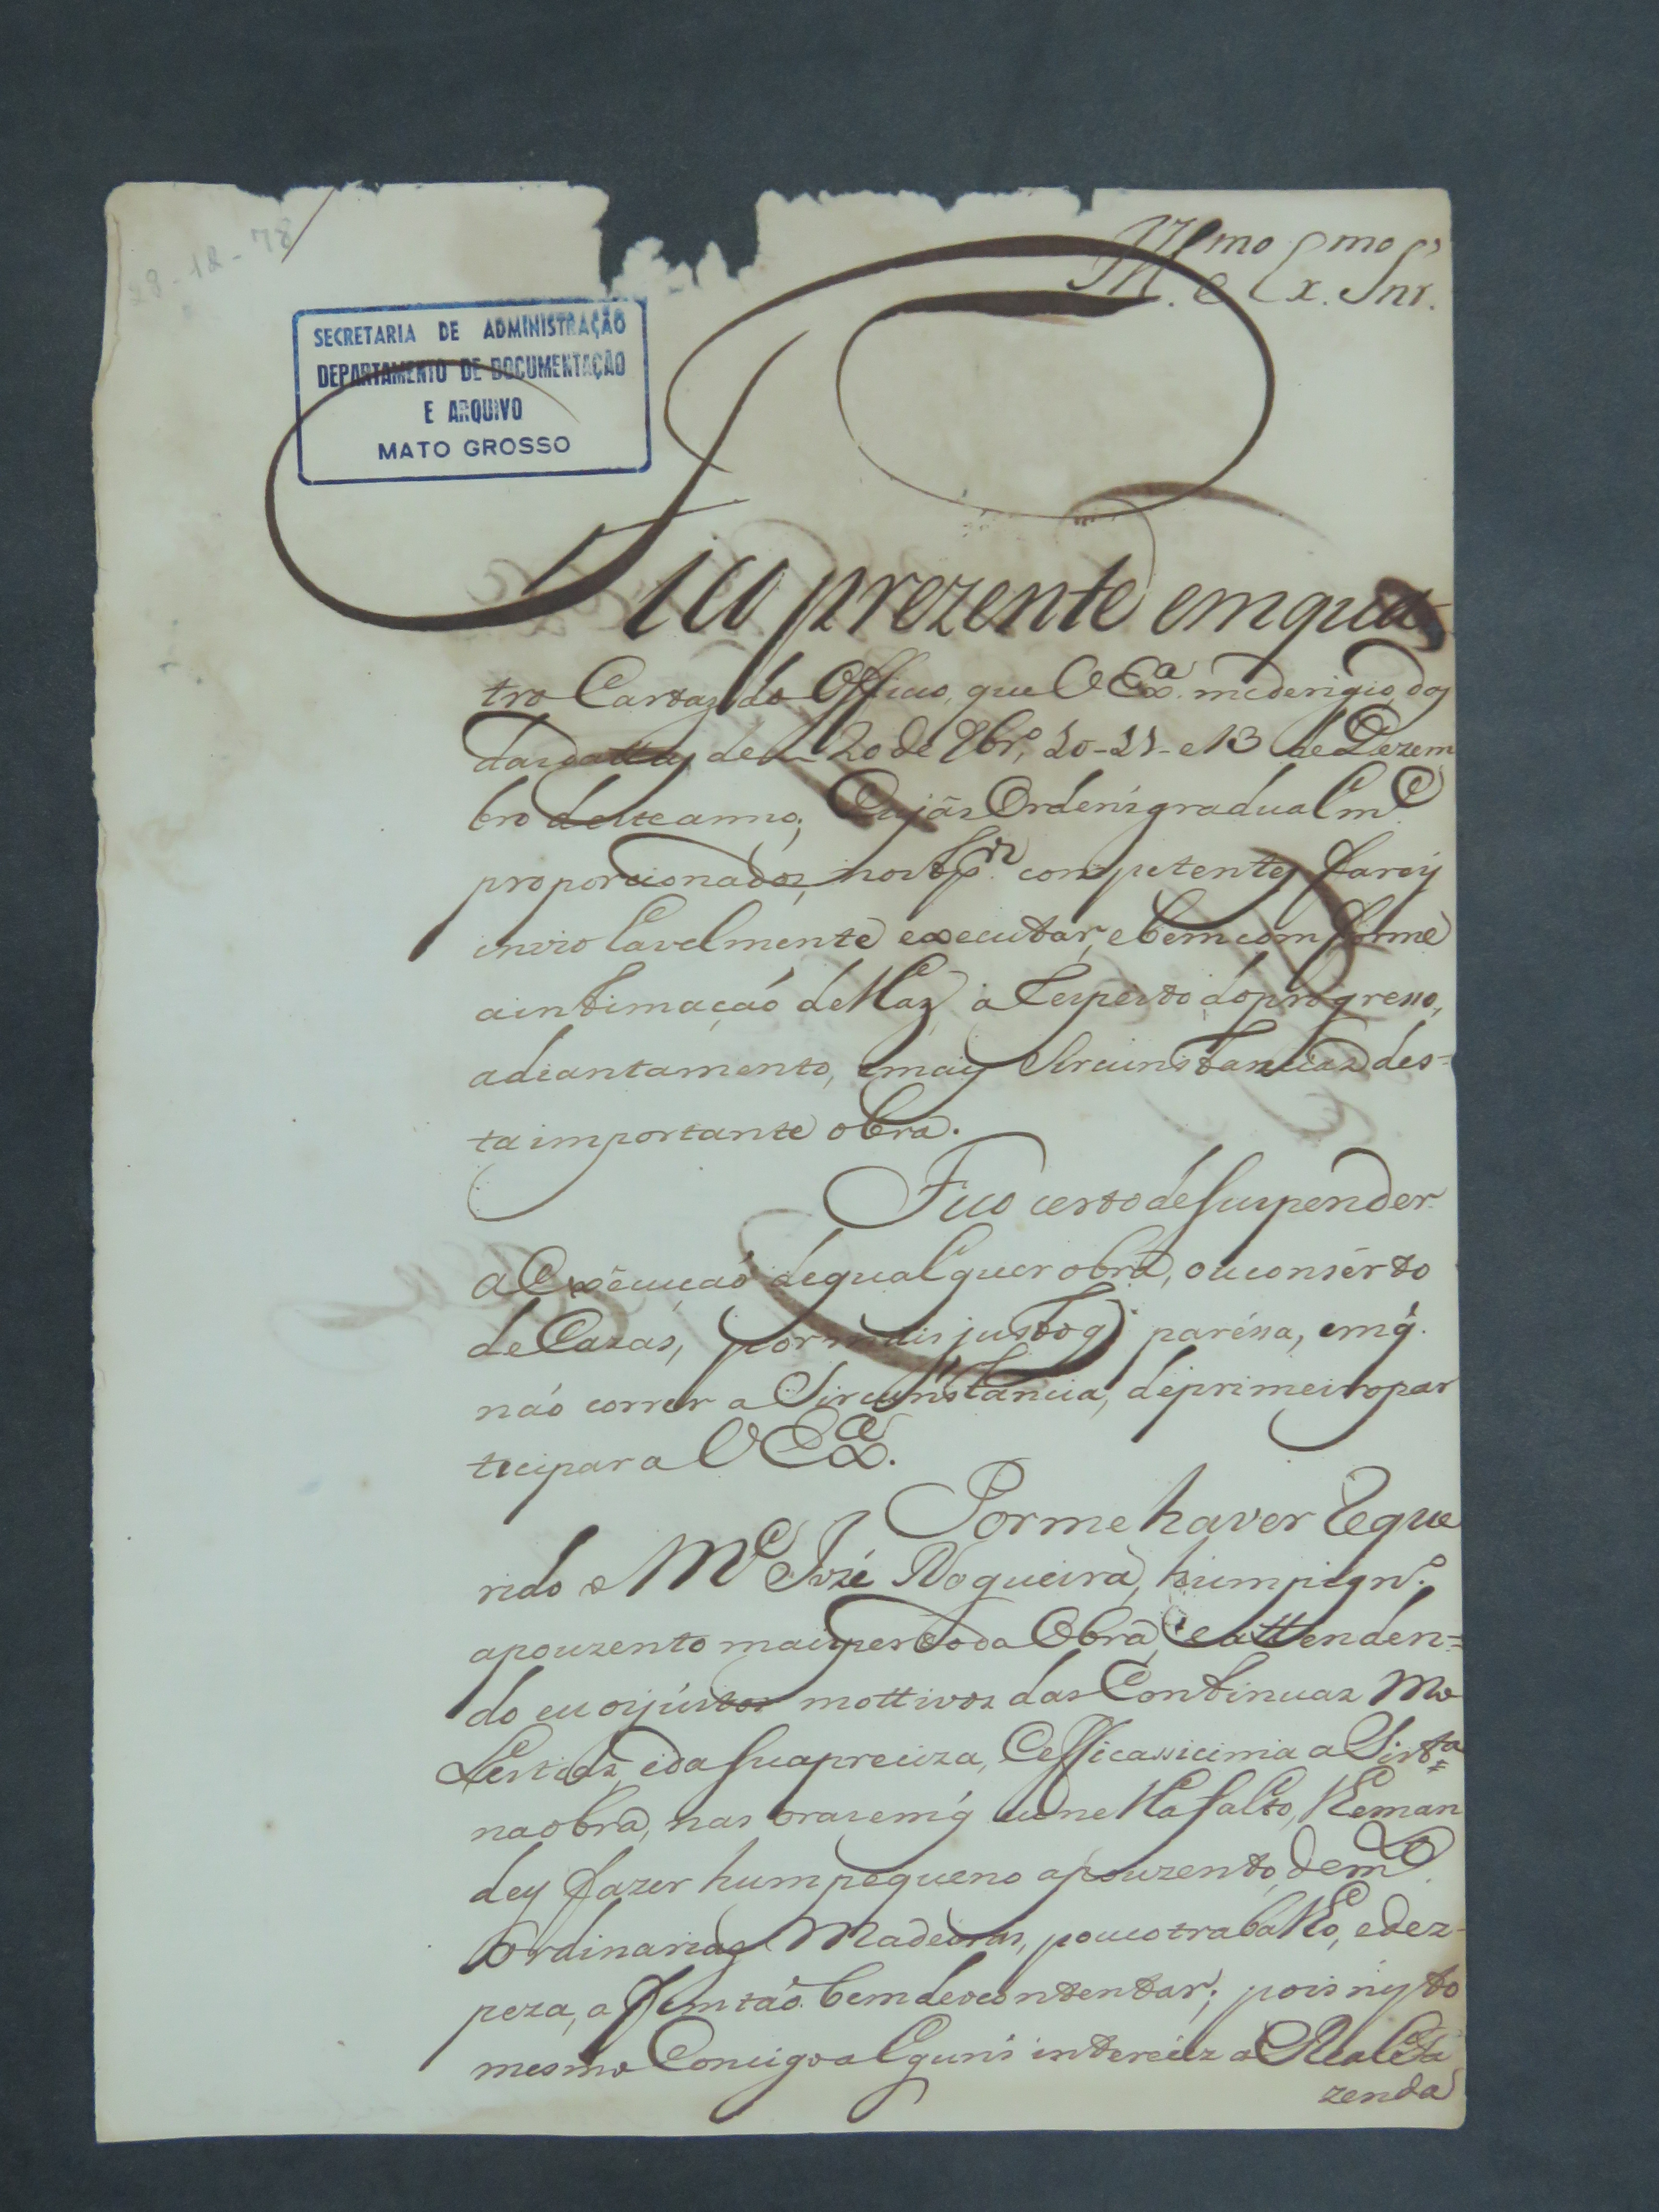 28-12-78
Ill.mo e Ex.mo Snr.
SECRETARIA DE ADMINISTRAÇÃO
DEPARTAMENTO DE DOCUMENTAÇÃO
E ARQUIVO
MATO GROSSO
Fico prezente em qua
tro Cartaz do Officio, que V Exª. me derigio, dos
das dattas de 20 de 9br.º, 10-11-e 13 de Dezem
bro deste anno; Cujas Ordens gradualm.e
proporcionadoz, nos competentes farey
inviolavelmente executar, e bem comforme
a intimaçaõ dellaz, a Respeito do progresso,
adiantamento, e mais Sircunstanciaz des-
ta importante obra.
Fico certo de suspender
a Execuçaõ de qualquer obra, ou consérto
de Cazas, por mais justo q' paréssa, em q'
naõ correr a Sircunstancia, de primeiro par
ticipar a V Exª.
Por me haver Reque
rido o M.e Jozé Nogueira, hum piqn.º
apouzento mais perto da Obra, e attenden=
do eu os justos mottivos das Continuaz Mo
lestiaz, e da sua preciza, Cefficassicimia a Sist.ª
na obra, nas oras em q' ella falto, lhe man
dey fazer hum pequeno apouzento, de m.to
Ordinarias Madeiras, pouco trabalho, e dez-
peza, a fim taõ bem de o contentar; pois nysto
mesmo Concigo alguns interécez a Real Fa
zenda